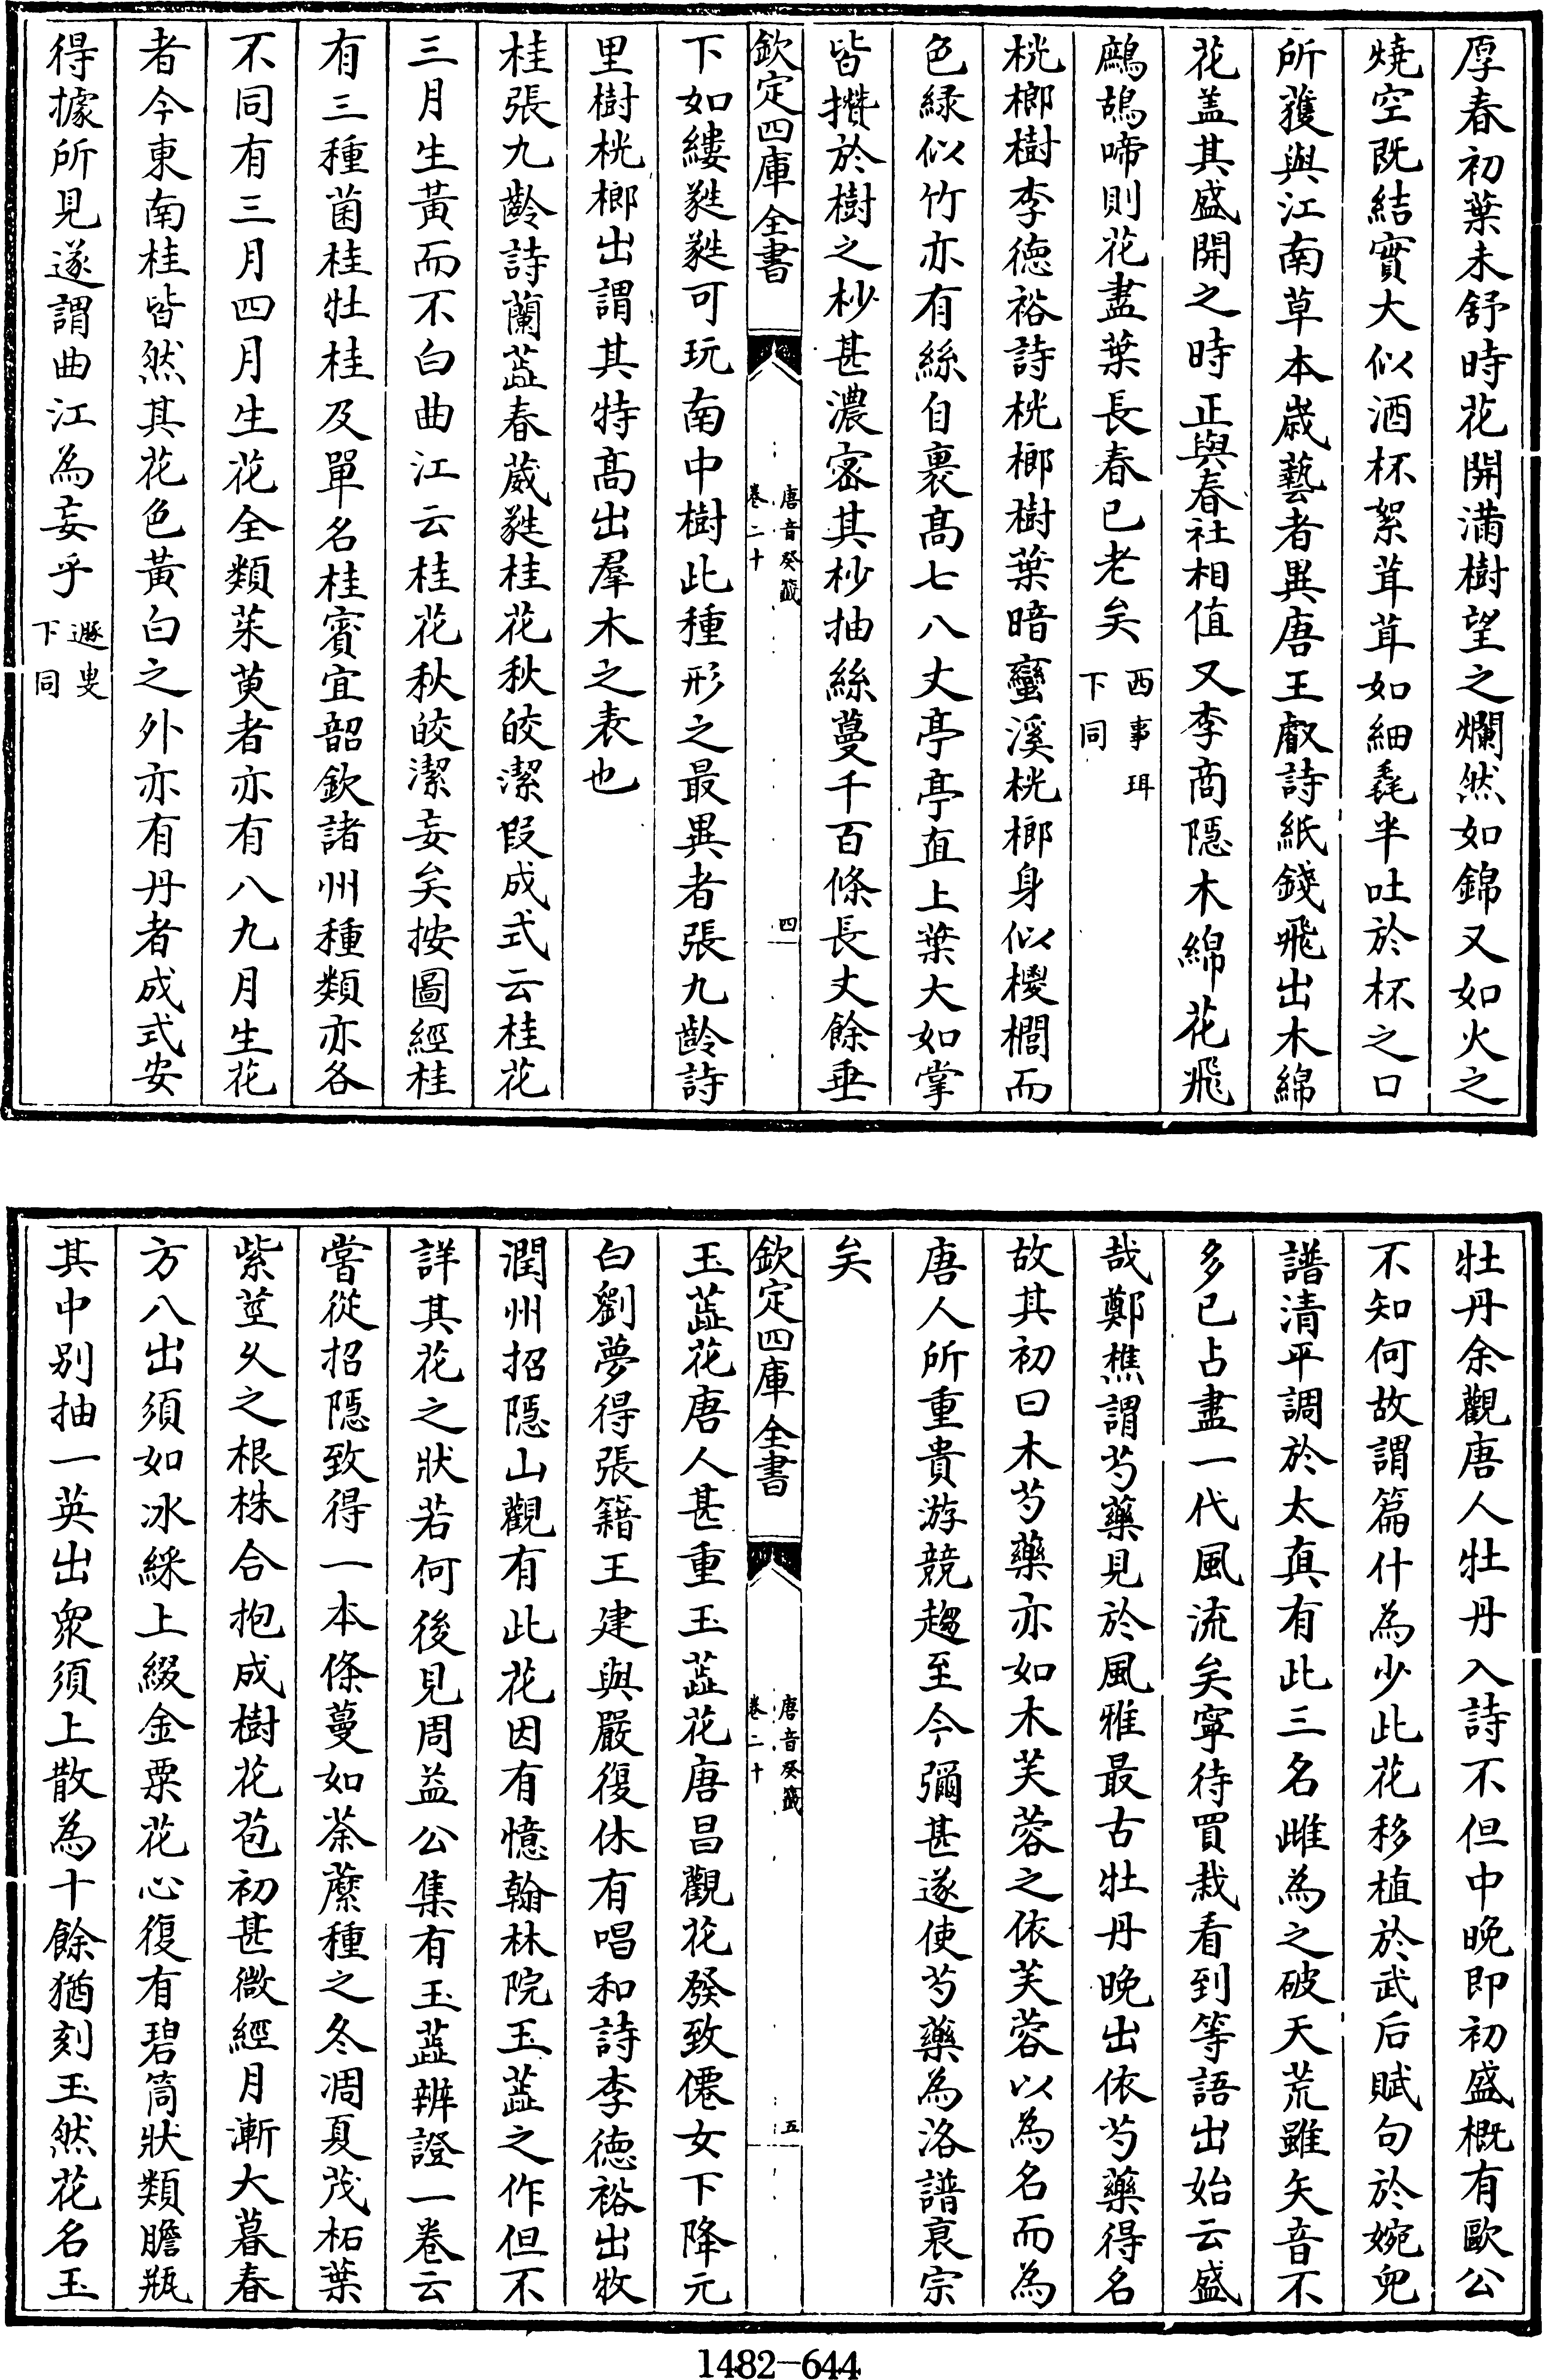 厚春初葉未舒時花開滿樹望之爛然如錦又如火之
燒空既結實大似酒杯絮茸茸如細毳半吐於杯之口
所獲與江南草本歳藝者異唐王叡詩紙錢飛出木綿
花盖其盛開之時正與春社相值又李商隠木綿花飛
鷓鴣啼則花盡葉長春已老矣西事珥下同
桄榔樹李德裕詩桄榔樹葉暗蠻溪桄榔身似椶櫚而
色緑似竹亦有絲自裹髙七八丈亭亭直上葉大如掌
皆攢於樹之杪甚濃宻其杪抽絲蔓千百條長丈餘垂
欽定四庫全書
唐音癸籖
卷二十
四
下如縷毿毿可玩南中樹此種形之最異者張九齡詩
里樹桄榔出謂其特髙出羣木之表也
桂張九齡詩蘭蕋春葳毿桂花秋皎潔叚成式云桂花
三月生黃而不白曲江云桂花秋皎潔妄矣按圖經桂
有三種菌桂牡桂及單名桂賔宜韶欽諸州種類亦各
不同有三月四月生花全類茱萸者亦有八九月生花
者今東南桂皆然其花色黃白之外亦有丹者成式安
得據所見遂謂曲江為妄乎遯叟下同
牡丹余觀唐人牡丹入詩不但中晚即初盛概有歐公
不知何故謂篇什為少此花移植於武后賦句於婉兒
譜清平調於太真有此三名雌為之破天荒雖矢音不
多已占盡一代風流矣寕待買栽看到等語出始云盛
哉鄭樵謂芍藥見於風雅最古牡丹晚出依芍藥得名
故其初曰木芍藥亦如木芙蓉之依芙蓉以為名而為
唐人所重貴游競趨至今彌甚遂使芍藥為洛譜裒宗
矣
欽定四庫全書
唐音癸籖
卷二十
五
玉蕋花唐人甚重玉蕋花唐昌觀花發致僊女下降元
白劉夢得張籍王建與嚴復休有唱和詩李德裕出牧
潤州招隠山觀有此花因有憶翰林院玉蕋之作但不
詳其花之狀若何後見周益公集有玉蕋辨證一卷云
嘗從招隠致得一本條蔓如荼蘼種之冬凋夏茂柘葉
紫莖乆之根株合抱成樹花苞初甚微經月漸大暮春
方八出須如冰綵上綴金粟花心復有碧筒狀類膽瓶
其中别抽一英出衆須上散為十餘猶刻玉然花名玉
1482-644